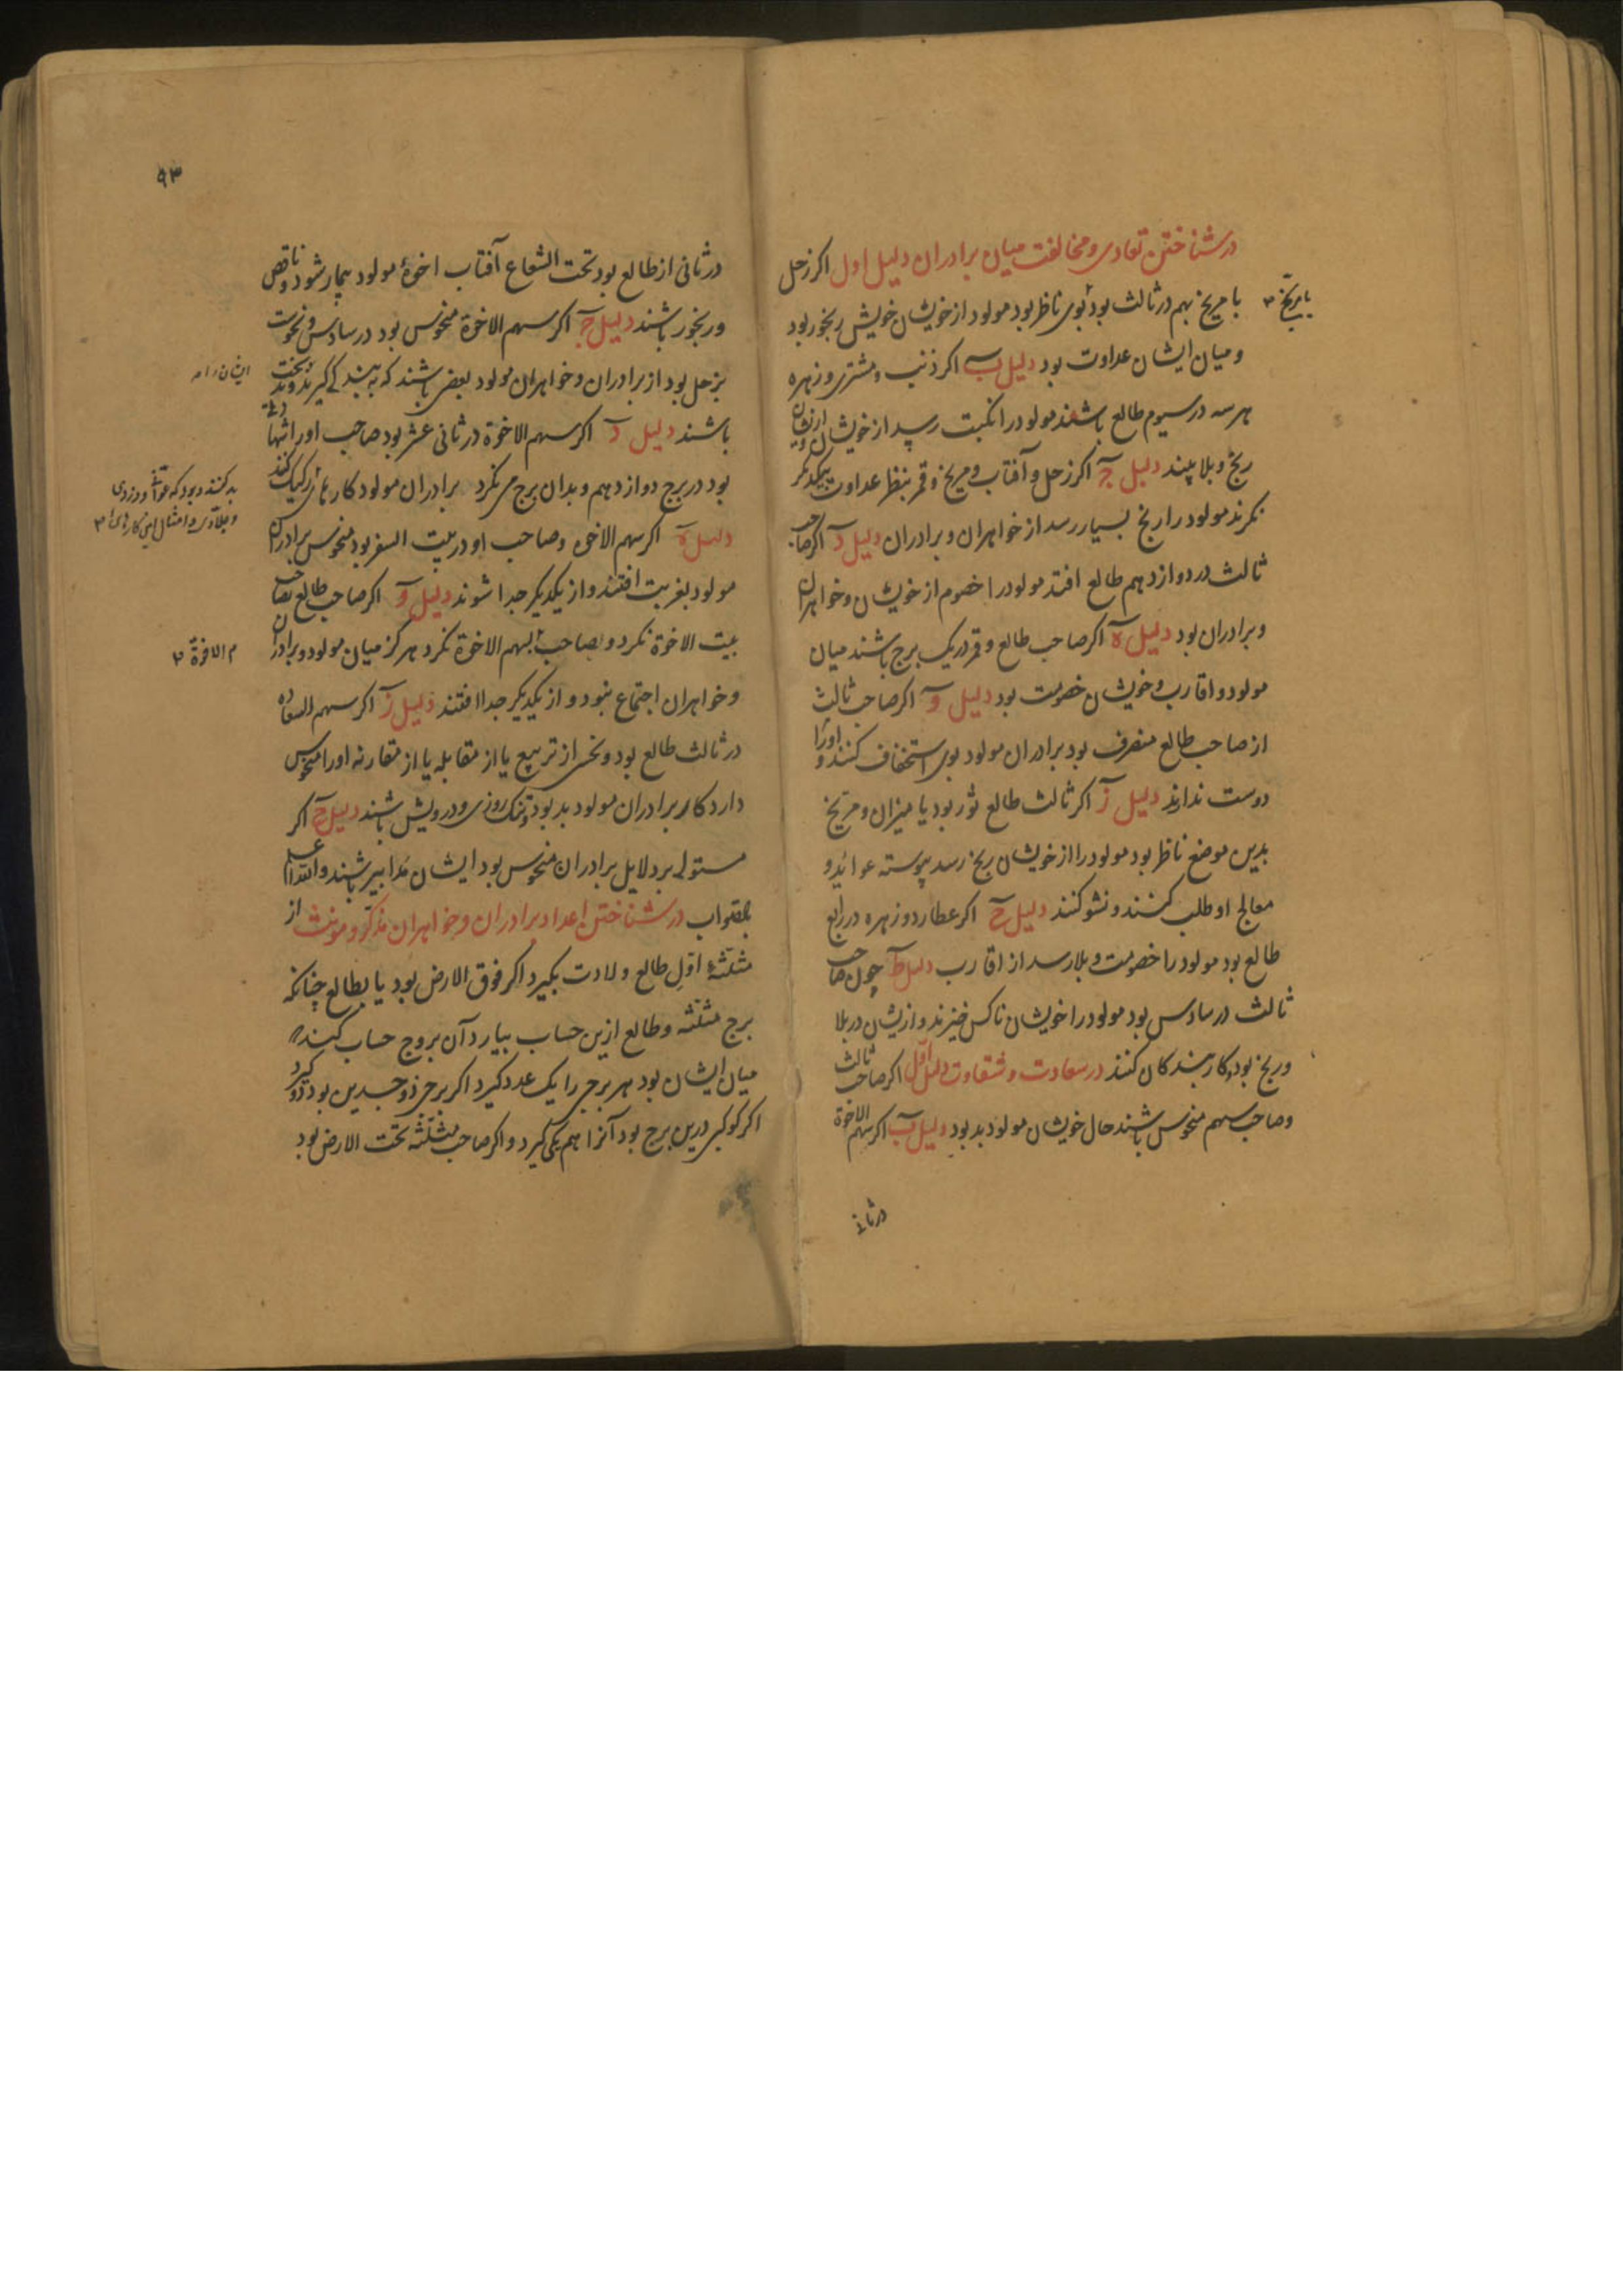 در شناختن تعادی و مخالفت میان برادران دلیل اول اکر زحل
با مریخ بهم در ثالث بود بوی ناظر بود مولود از خویشان خویش رنجور بود
با مریخ
و میان ایشان عداوت بود دلیل ب اکر ذنب و مشتری و زهره
هر سه در سیوم طالع باشند مولود را نکبت رسد از خویشان و ازیشان
رنج و بلا بیند دلیل ج اکر زحل و آفتاب و مریخ و قمر بنظر عداوت بیکدیکر
نکرند مولود را رنج بسیار رسد از خواهران و برادران دلیل د اکر صاحب
ثالث در دوازدهم طالع افتد مولود را خصوم از خویشان و خواهران
و برادران بود دلیل ه اکر صاحب طالع و قمر در یک برج باشند میان
مولود و اقارب و خویشان خصومت بود دلیل و اکر صاحب ثالث
از صاحب طالع منصرف بود برادران مولود بوی استخفاف کنند و او را
دوست ندارند دلیل ز اکر ثالث طالع ثور بود یا میزان و مریخ
بدین موضع ناظر بود مولود را از خویشان رنج رسد پیوسته
او طلب کنند و نشو کنند دلیل ح اکر عطارد و زهره در رابع
طالع بود مولود را خصومت و بلا رسد از اقارب دلیل ط چون صاحب
ثالث در سادس بود مولود را خویشان ناکس خیزند و ازیشان در بلا
و رنج بود و کار بندکان کنند در سعادت و شقاوت دلیل اول اکر صاحب ثالث
و صاحب سهم منحوس باشند حال خویشان مولود بد بود دلیل ب اکر سهم الاخوة
در ثانی
۹۳
در ثانی از طالع بود تحت الشعاع آفتاب اخوهٔ مولود بیمار شود و ناقص
و رنجور باشند دلیل ج اکر سهم الاخوة منحوس بود در سادس و نحوست
بزحل بود از برادران و خواهران مولود بعضی باشند که به بندکی کیرند
ایشان را
باشند دلیل د اکر سهم الاخوة در ثانی عشر بود صاحب او را
بود در برج دوازدهم و بدان برج می نکرد برادران مولود کارهای رکیک کنند
بد کنند و بود که و دزدی
و جلادی و امثال این کارهای
دلیل ه اکر سهم الاخوة و صاحب او در بیت السفر بود منحوس برادران
مولود بغربت افتند و از یکدیکر جدا شوند دلیل و اکر صاحب طالع بصاحب
بیت الاخوة نکرد و بصاحب سهم الاخوة نکرد هرکز میان مولود و برادران
م الاخوة
و خواهران اجتماع نبود و از یکدیکر جدا افتند دلیل ز اکر سهم السعاده
در ثالث طالع بود و نحس از تربیع یا از مقابله یا از مقارنه او را منحوس
دارد کار برادران مولود بد بود و تنک روزی و درویش باشند دلیل ح اکر
مستولی بر دلایل برادران منحوس بود ایشان مدابیر باشند و الله اعلم
بالصواب در شناختن اعداد برادران و خواهران مذکر و مونث از
مثلثهٔ اول طالع ولادت بکیرد اکر فوق الارض بود یا بطالع چنانکه
برج مثلثه و طالع ازین حساب بیارد آن بروج حساب کنند
میان ایشان بود هر برجی را یک عدد کیرد اکر برجی ذو جسدین بود دو کیرد
اکر کوکبی درین برج بود آنرا هم یکی کیرد و اکر صاحب مثلثه تحت الارض بود